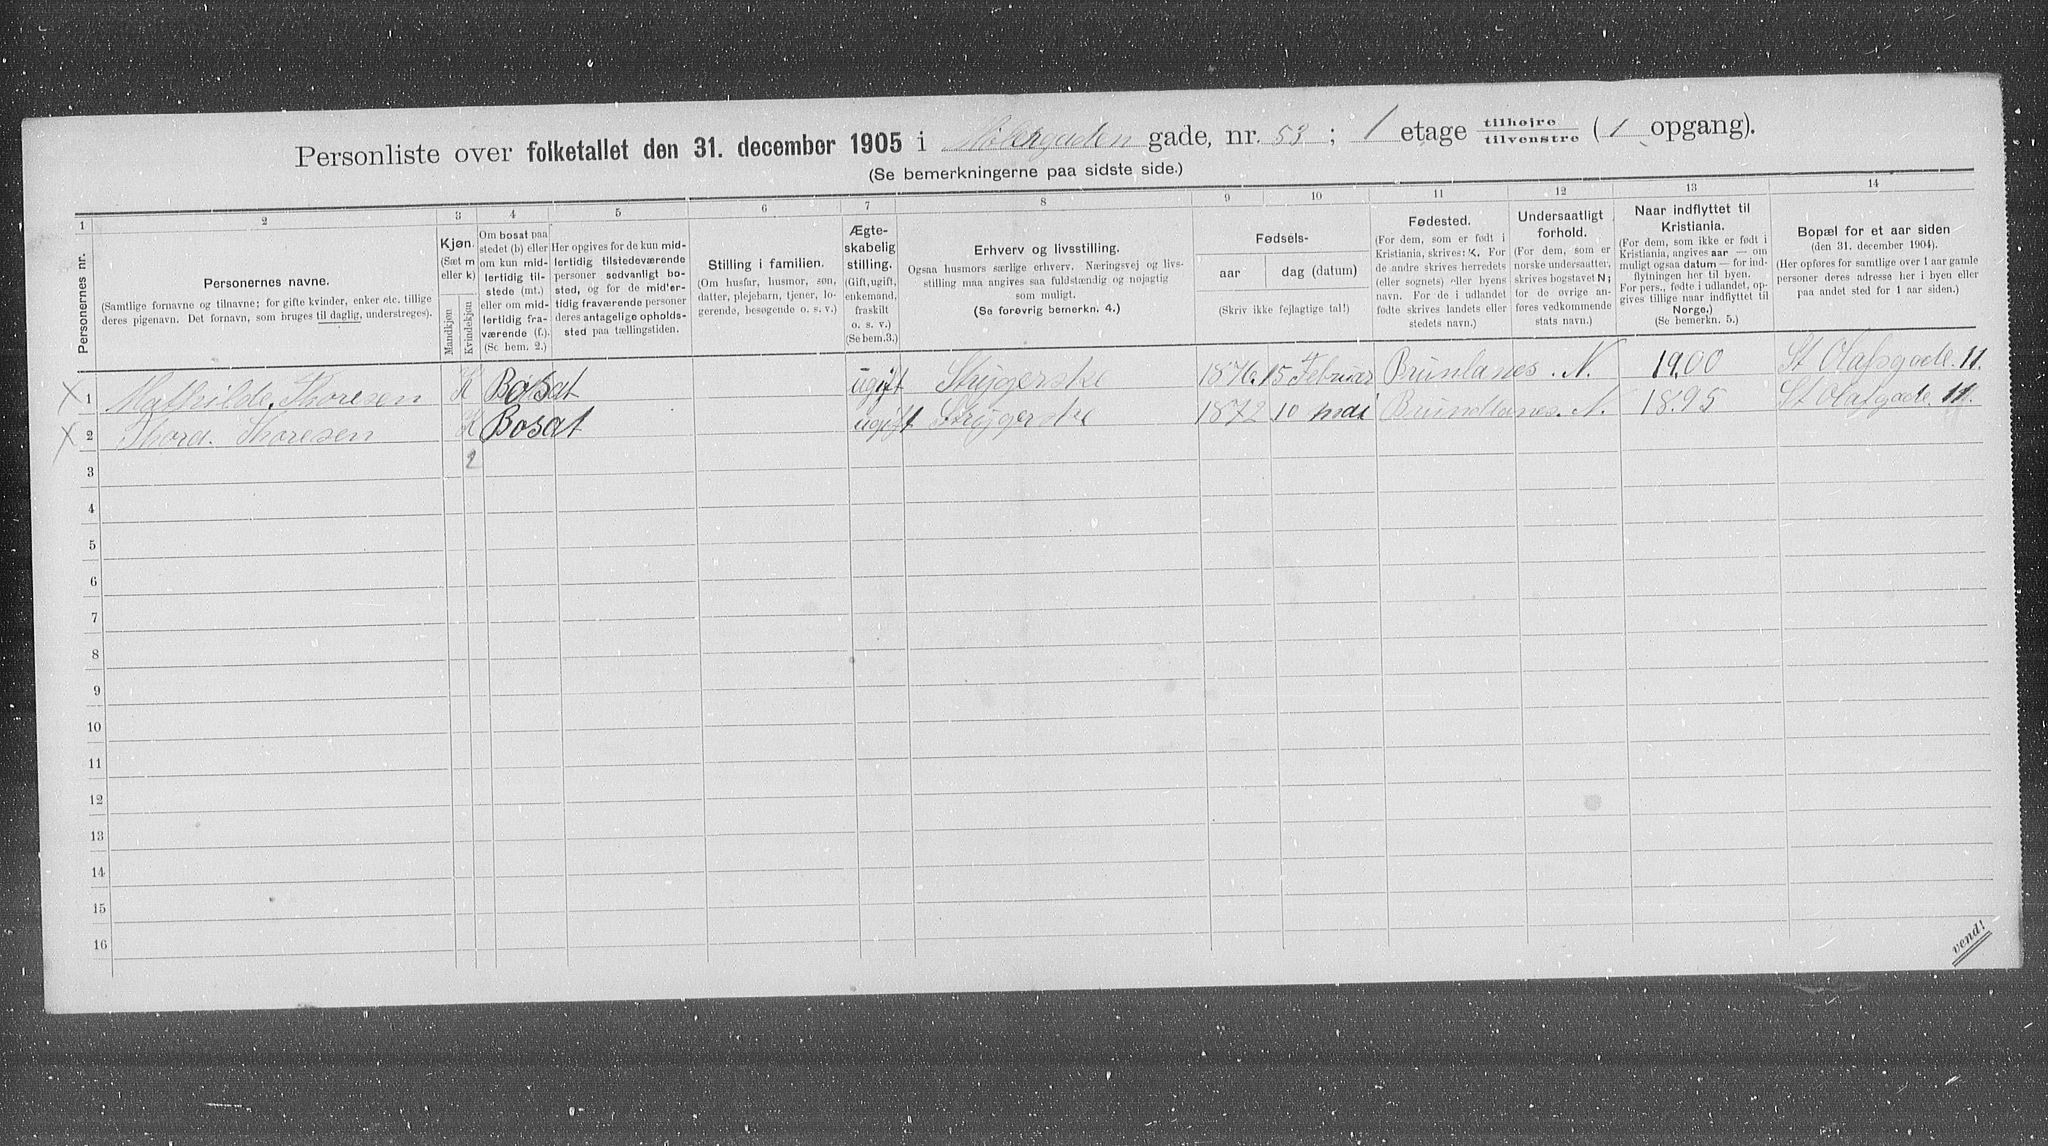 Personliste over folketallet den 31. december 1905 i Møllergaden gade, nr. 53 ; 1 etage tilhøjre tilvenstre ( 1 opgang).
(Se bemerkningerne paa sidste side.)
1 2 3 4 5 6 7 8 9 10 11 12 13 14
Personernes nr.
Personernes navne.
(Samtlige fornavne og tilnavne; for gifte kvinder, enker etc. tillige
deres pigenavn. Det fornavn, som bruges til daglig, understreges).
Kjøn.
(Sæt m
eller k)
Mandkjøn
Kvindekjøn
Om bosat paa
stedet (b) eller
om kun mid-
lertidig til-
stede (mt.)
eller om mid-
lertidig fra-
værende (f.).
(Se bem. 2.)
Her opgives for de kun mid-
lertidig tilstedeværende
personer sedvanligt bo-
sted, og for de midler-
tidig fraværende personer
deres antagelige opholds-
sted paa tællingstiden.
Stilling i familien.
(Om husfar, husmor, søn,
datter, plejebarn, tjener, lo-
gerende, besøgende o. s. v.)
Ægte-
skabelig
stilling.
(Gift, ugift,
enkemand,
fraskilt
o. s. v.)
(Se bem.3.)
Erhverv og livsstilling.
Ogsaa husmors særlige erhverv. Næringsvej og livs-
stilling maa angives saa fuldstændig og nøjagtig
som muligt.
(Se forøvrig bemerkn. 4.)
Fødsels-
aar dag (datum)
(Skriv ikke fejlagtige tal!)
Fødested.
(For dem, som er født i
Kristiania, skrives: K. For
de andre skrives herredets
(eller sognets) eller byens
navn. For de i udlandet
fødte skrives landets eller
stedets navn.)
Undersaatligt
forhold.
(For dem, som er
norske undersaatter,
skrives bogstavet N;
for de øvrige an-
føres vedkommende
stats navn.)
Naar indflyttet til
Kristiania.
(For dem, som ikke er født i
Kristiania, angives aar — om
muligt ogsaa datum — for ind-
flytningen her til byen.
For pers., fødte i udlandet, op-
gives tillige naar indflyttet til
Norge.)
(Se bemerkn. 5.)
Bopæl for et aar siden
(den 31. december 1904).
(Her opføres for samtlige over 1 aar gamle
personer deres adresse her i byen eller
paa andet sted for 1 aar siden.)
X 1 Mathilde Thoresen K Bosat ugift Strygerske 1876 15 Februar Brunlanes. N. 1900 St Olafsgade 11.
X 2 Thora Thoresen K Bosat ugift Strygerske 1872 10 mai Brundlanes. N. 1895 St Olafsgade 11.
3 2
4
5
6
7
8
9
10
11
12
13
14
15
16
vend!